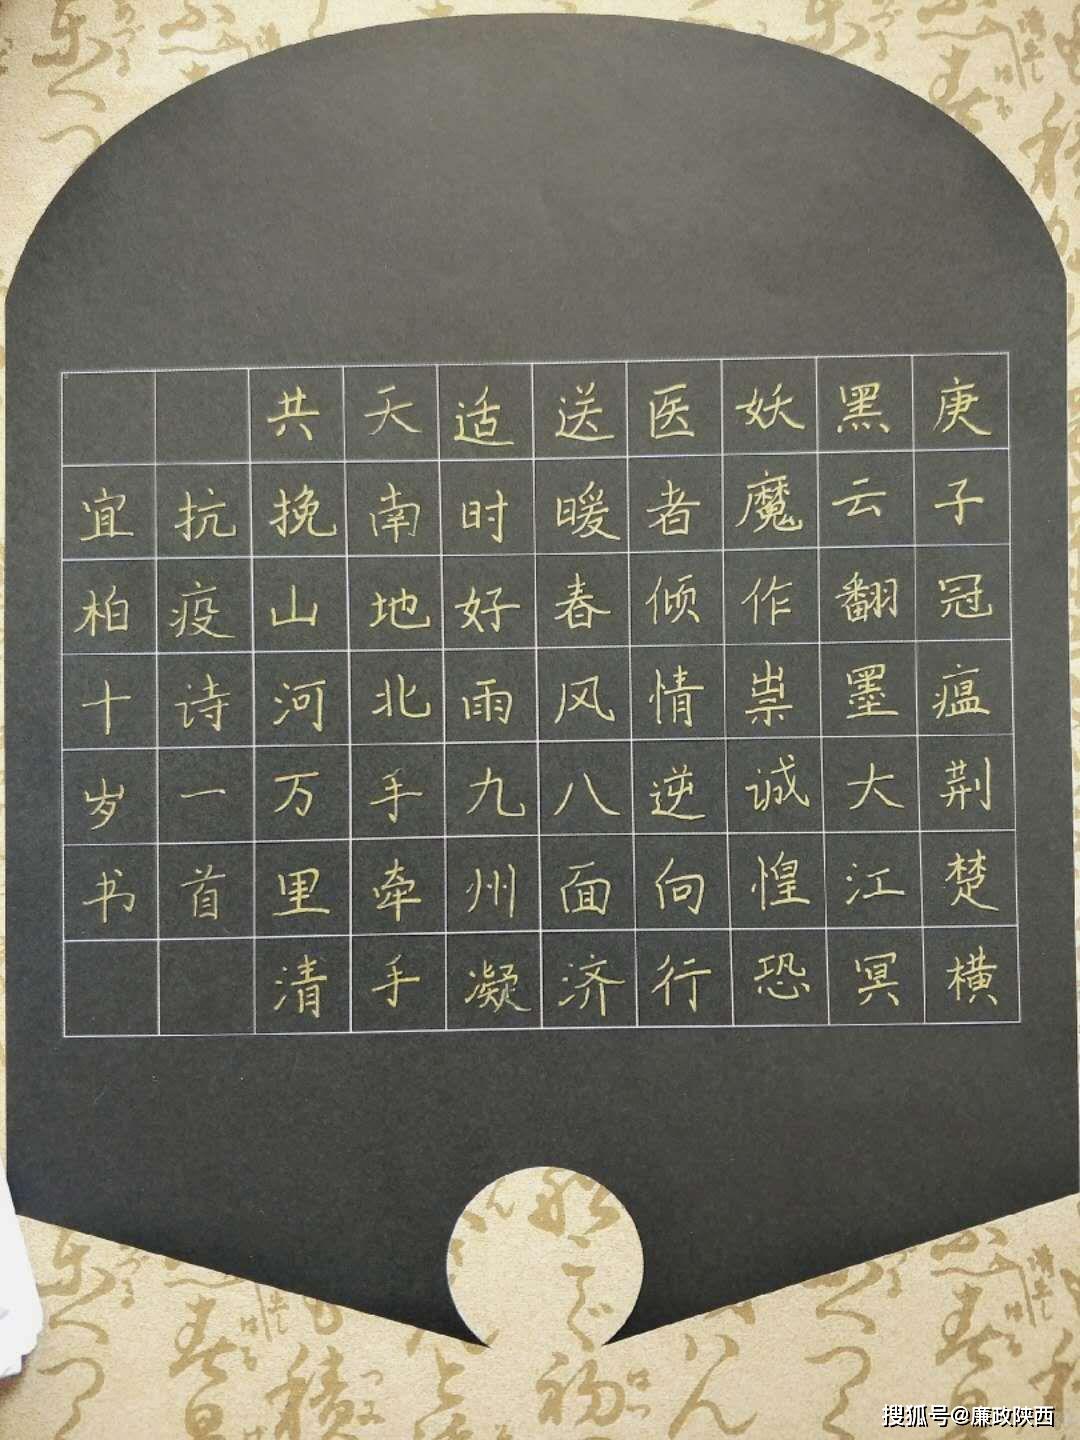 庚子冠瘟荆楚横
黑云翻墨大江冥
妖魔作祟诚惶恐
医者倾情逆向行
送暖春风八面济
适时好雨九州凝
天南地北手牵手
共挽山河万里清
抗疫诗一首
宜柏十岁书
搜狐号@廉政陕西